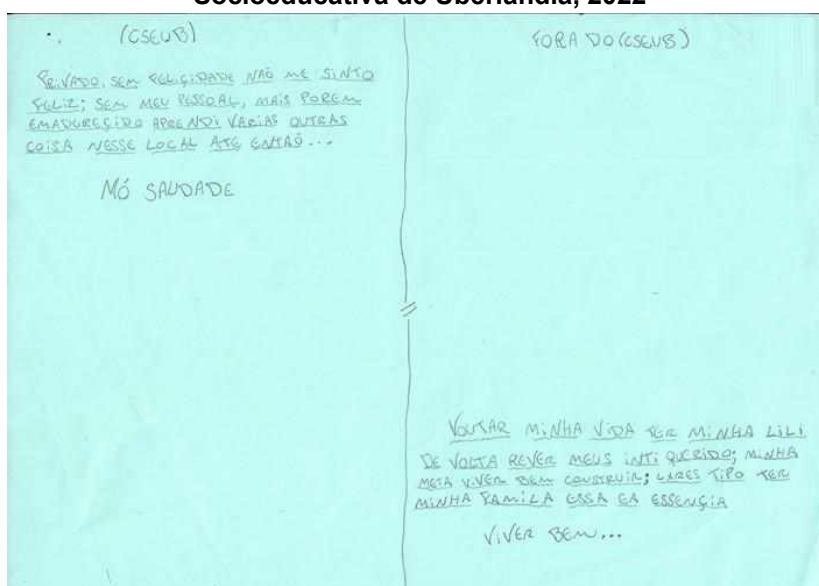 Socioeducativa de Uberlândia, 2022
(CSEUB)
PRIVADO, SEM FELIÇIDADE NÃO ME SINTO
FELIZ; SEM MEU PESSOAL, MAIS POREM
EMADUREÇIDO APRENDI VÁRIAS OUTRAS
COISA NESSE LOCAL ATE ENTÃO...
MÓ SAUDADE
FORA DO (CSEUB)
VOUTAR MINHA VIDA TER MINHA LILI
DE VOLTA REVER MEUS INTI QUERIDO; MINHA
META VIVER BEM CONSTRUIR; LARES TIPO TER
MINHA FAMILA ESSA EA ESSENÇIA
VIVER BEM...